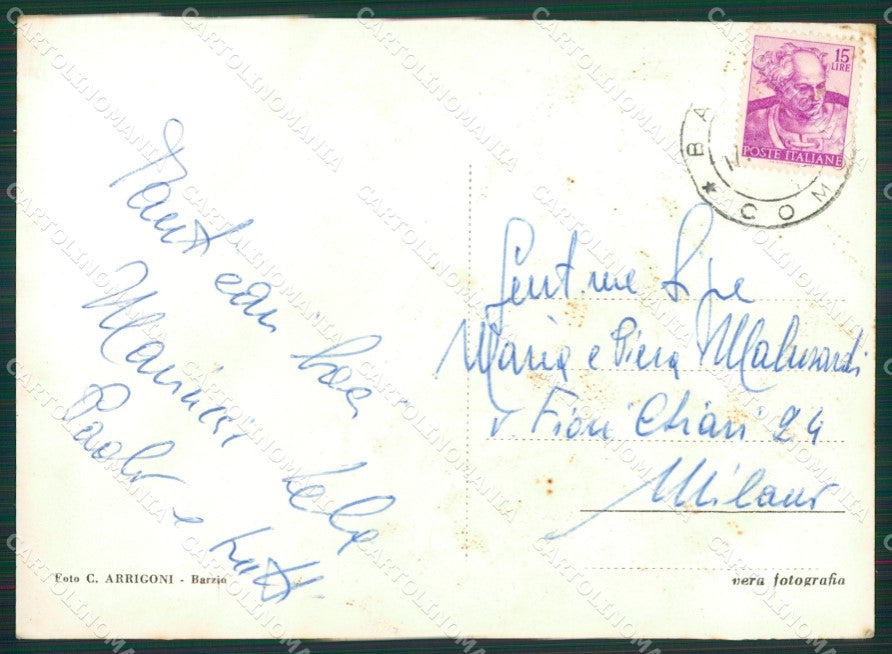 Tanti cari baci
Marinai Lella
Paolo e tutti
Foto C. ARRIGONI - Barzio
15
LIRE
POSTE ITALIANE
BA
COM
Gent.me Sig.e
Maria e Piera Malusardi
v Fiori Chiari 24
Milano
vera fotografia
CARTOLINOMANIA